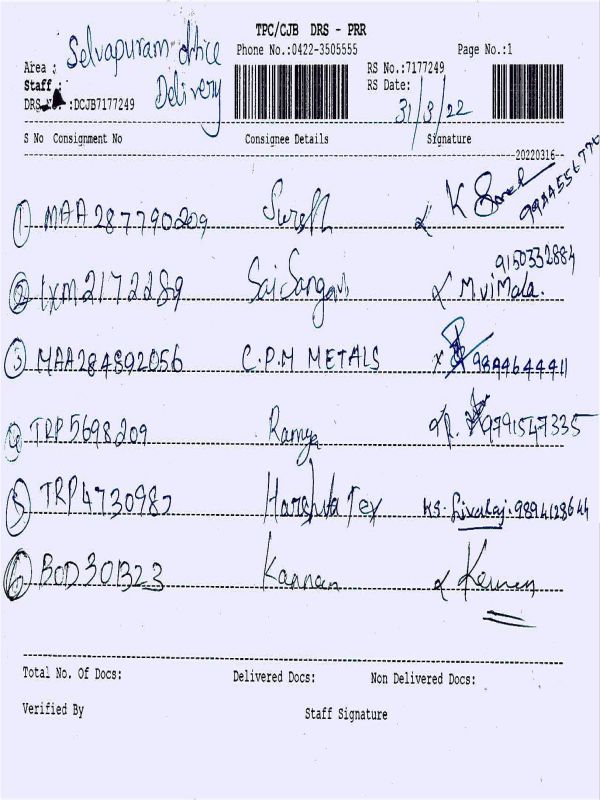 TPC/CJB DRS - PRR
Selvapuram office
Phone No.:0422-3505555 Page No.:1
Area :
RS No.:7177249
Staff :
Delivery
RS Date: 31/3/22
DRS No. :DCJB7177249
S No Consignment No Consignee Details Signature
20220316
① MAA287790209 Suresh K 9944556776
② IXM2172289 Sai Sangavi M ViMala. 9150332884
③ MAA284892056 C.P.M METALS x 9894644411
④ TRP5698209 Ramya R. 9791547335
⑤ TRP4730987 Harshva Tex KS. Sivaraj. 9894128644
⑥ BOD301323 Kannan Kannan
Total No. Of Docs: Delivered Docs: Non Delivered Docs:
Verified By Staff Signature